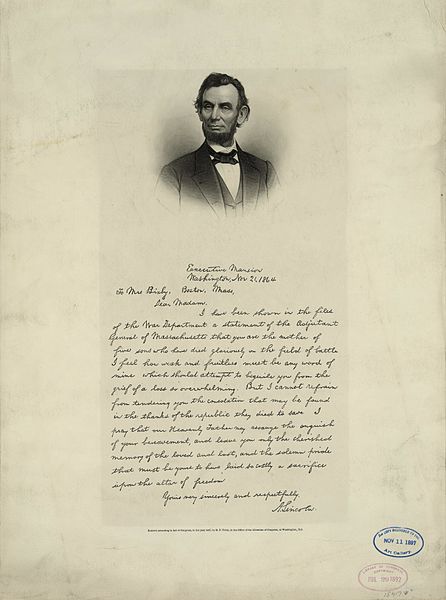 Executive Mansion
Washington, Nov 21, 1864
To Mrs Bixby, Boston, Mass,
Dear Madam.
I have been shown in the files
of the War Department a statement of the Adjutant
General of Massachusetts that you are the mother of
five sons who have died gloriously on the field of battle
I feel how weak and fruitless must be any word of
mine which should attempt to beguile you from the
grief of a loss so overwhelming. But I cannot refrain
from tendering you the consolation that may be found
in the thanks of the republic they died to save I
pray that our Heavenly Father may assuage the anguish
of your bereavement, and leave you only the cherished
memory of the loved and lost, and the solemn pride
that must be yours to have laid so costly a sacrifice
upon the altar of freedom
Yours very sincerely and respectfully
A. Lincoln.
NOV 11 1897
Art Gallery
LIBRARY OF CONGRESS
1892